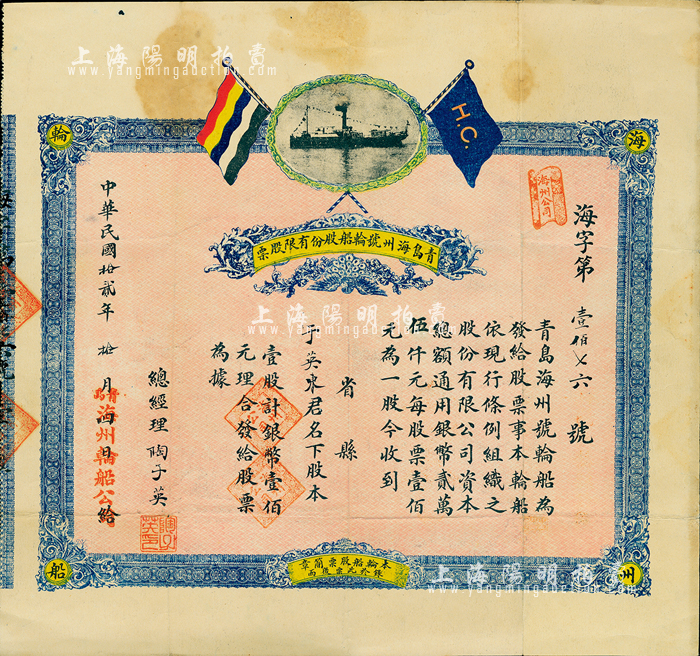 上海陽明拍賣
www.yangmingauction.com
H.C.
海
州
輪
船
青島海州號輪船股份有限股票
海州公司
海字第壹佰七六號
青島海州號輪船為
發給股票事本輪船
依現行條例組織之
股份有限公司資本
總額通用銀幣貳萬
伍仟元每股票壹佰
元為一股今收到
省縣
于英來君名下股本
壹股計銀幣壹佰
元理合發給股票
為據
總經理陶子英
中華民國拾貳年拾月四日
青島海州輪船公給
本輪船股票簡章
上海陽明拍賣
www.yangmingauction.com
上海陽明拍賣
www.yangmingauction.com